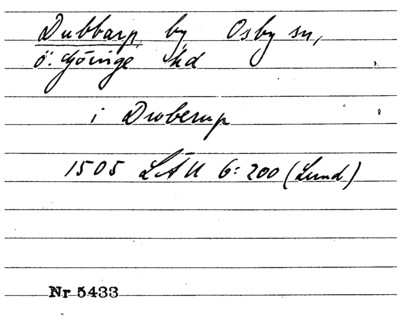 Dubbarp, by Osby sn,
Ö. Göinge hd
i Druberup
1505 LÄU 6:200 (Lund)
Nr 5433